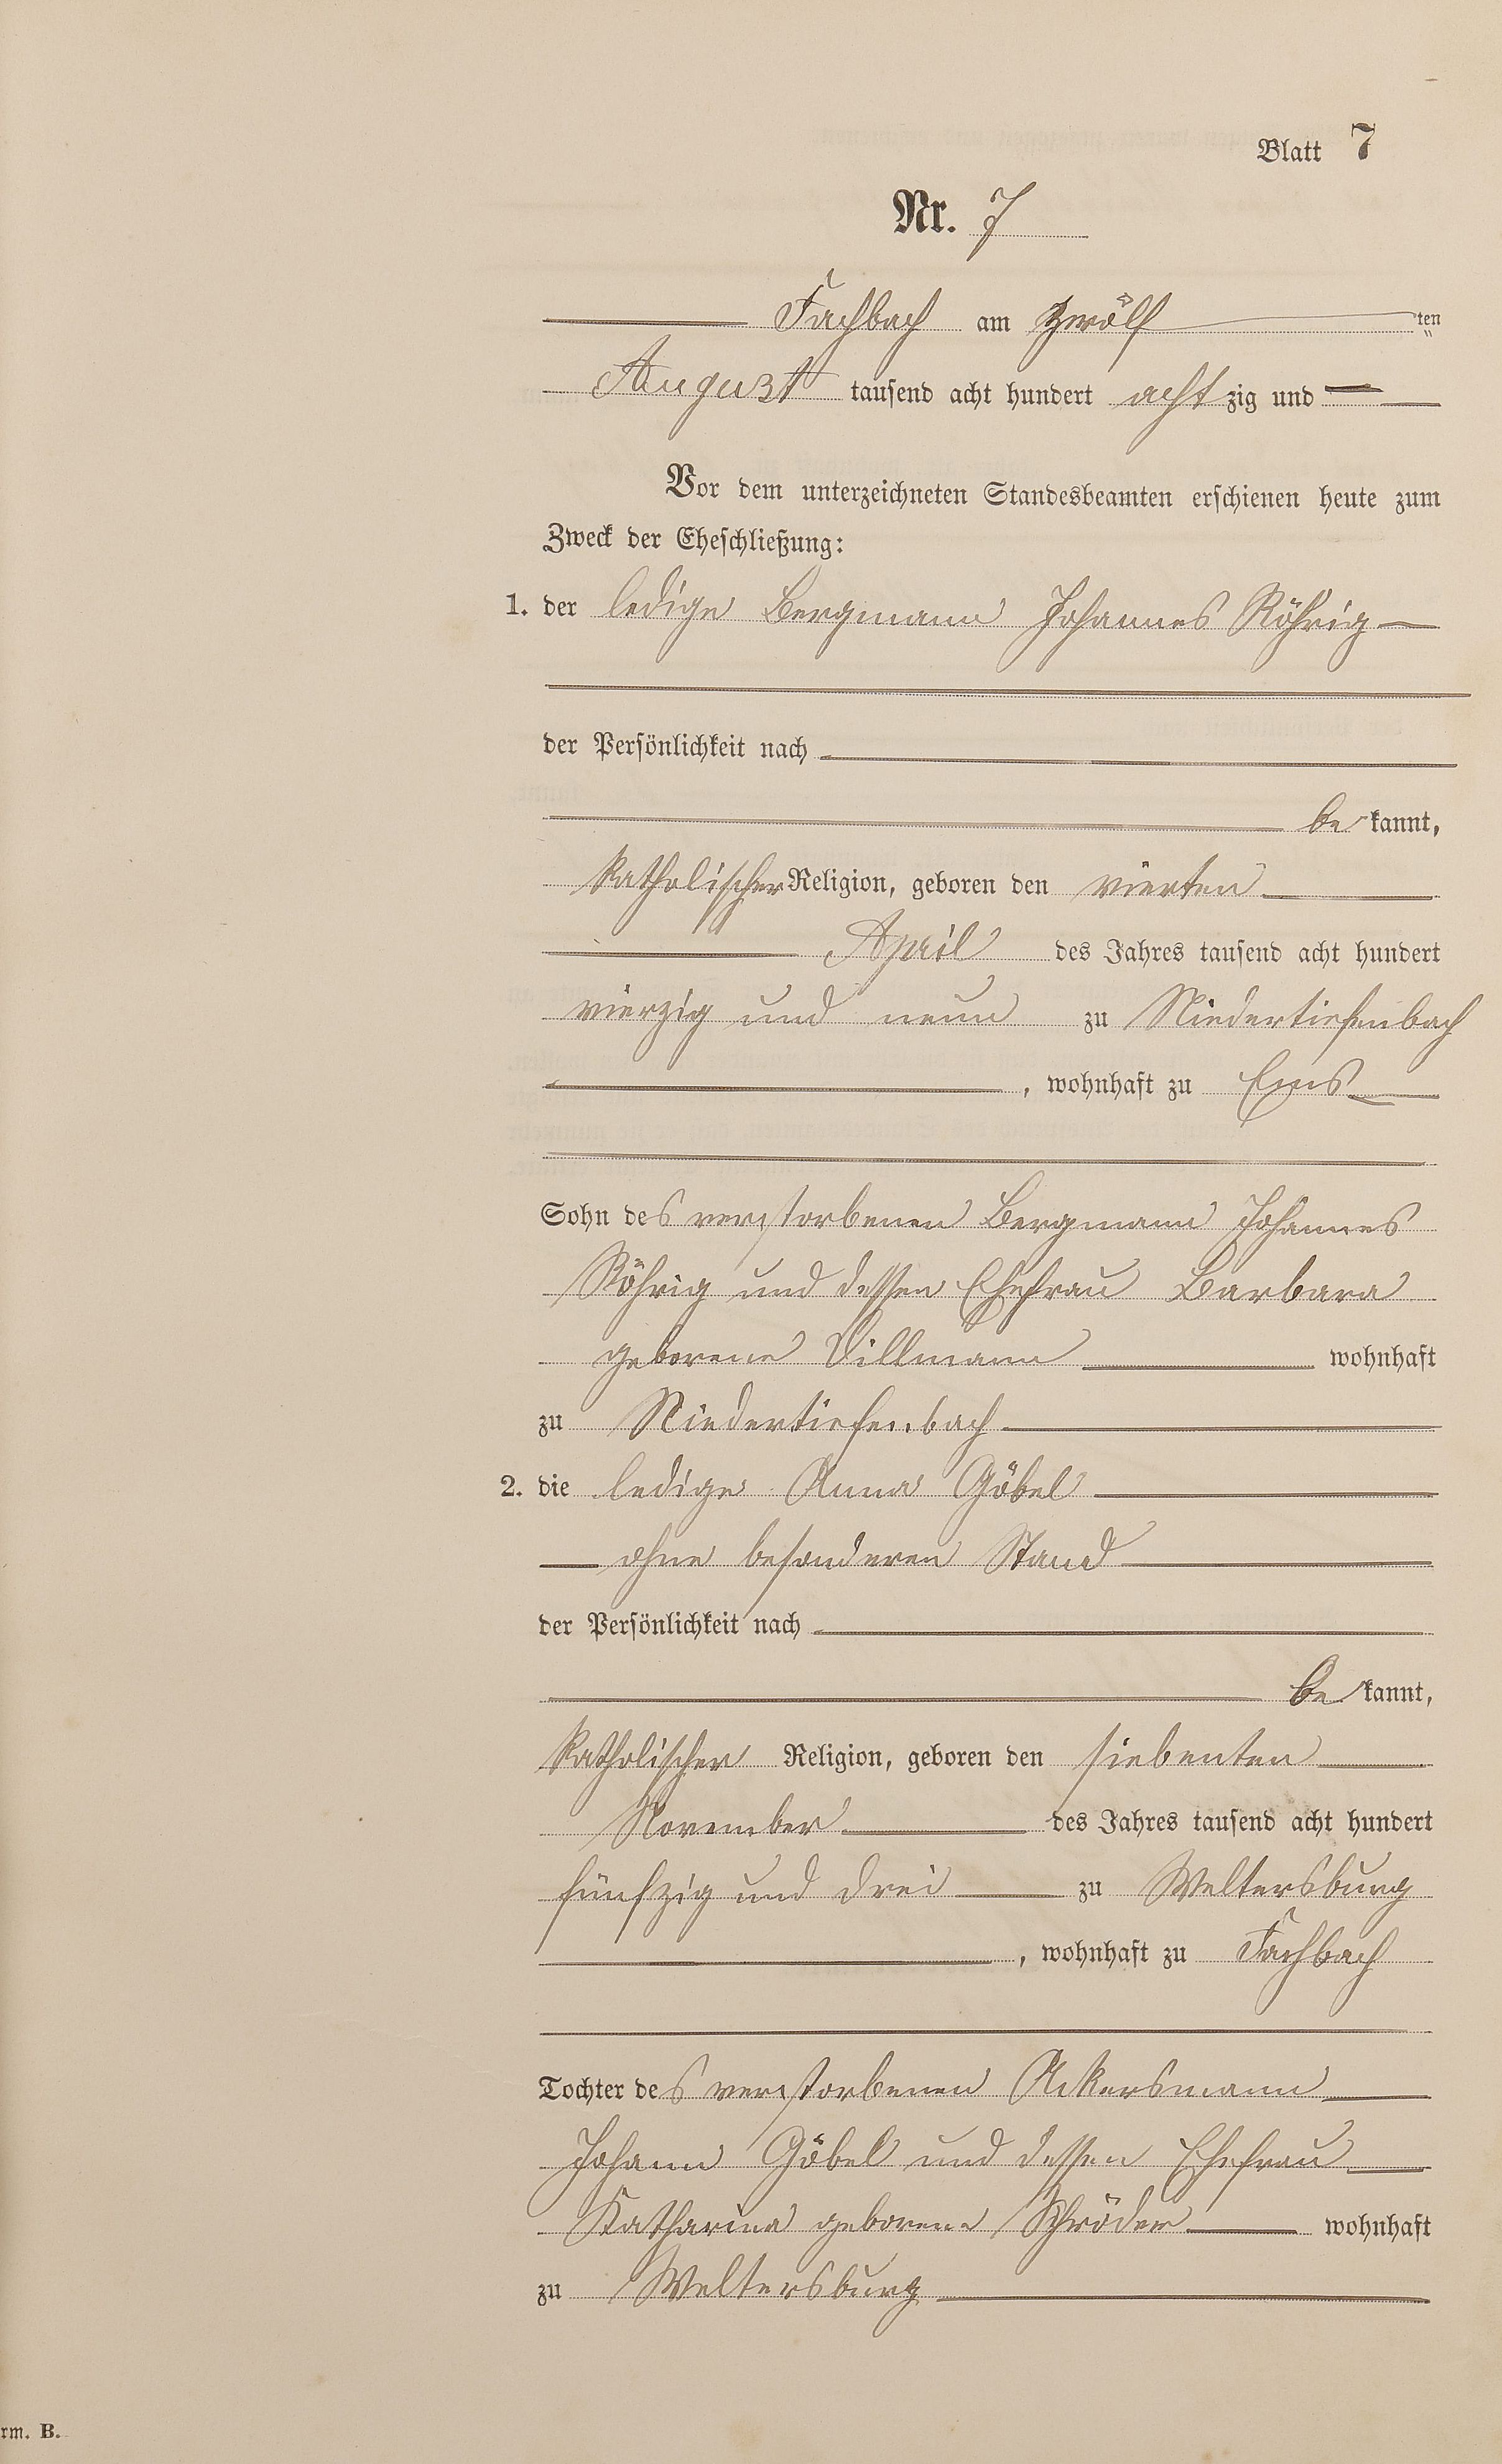 Blatt 7
Nr. 7
Fachbach am zwölf ten
August tausend acht hundert achtzig und
Vor dem unterzeichneten Standesbeamten erschienen heute zum
Zweck der Eheschließung:
1. der ledige Bergmann Johannes Röhrig
der Persönlichkeit nach
be kannt,
katholischer Religion, geboren den vierten
April des Jahres tausend acht hundert
vierzig und neun zu Niedertiefenbach
, wohnhaft zu Ems
Sohn des verstorbenen Bergmann Johannes
Röhrig und dessen Ehefrau Barbara
geborene Dillmann wohnhaft
zu Niedertiefenbach
2. die ledige Anna Göbel
ohne besonderen Stand
der Persönlichkeit nach
be kannt,
katholischer Religion, geboren den siebenten
November des Jahres tausend acht hundert
fünfzig und drei zu Weltersburg
, wohnhaft zu Fachbach
Tochter des verstorbenen Ackersmann
Johann Göbel und dessen Ehefrau
Katharina geborene Schröder wohnhaft
zu Weltersburg
rm. B.